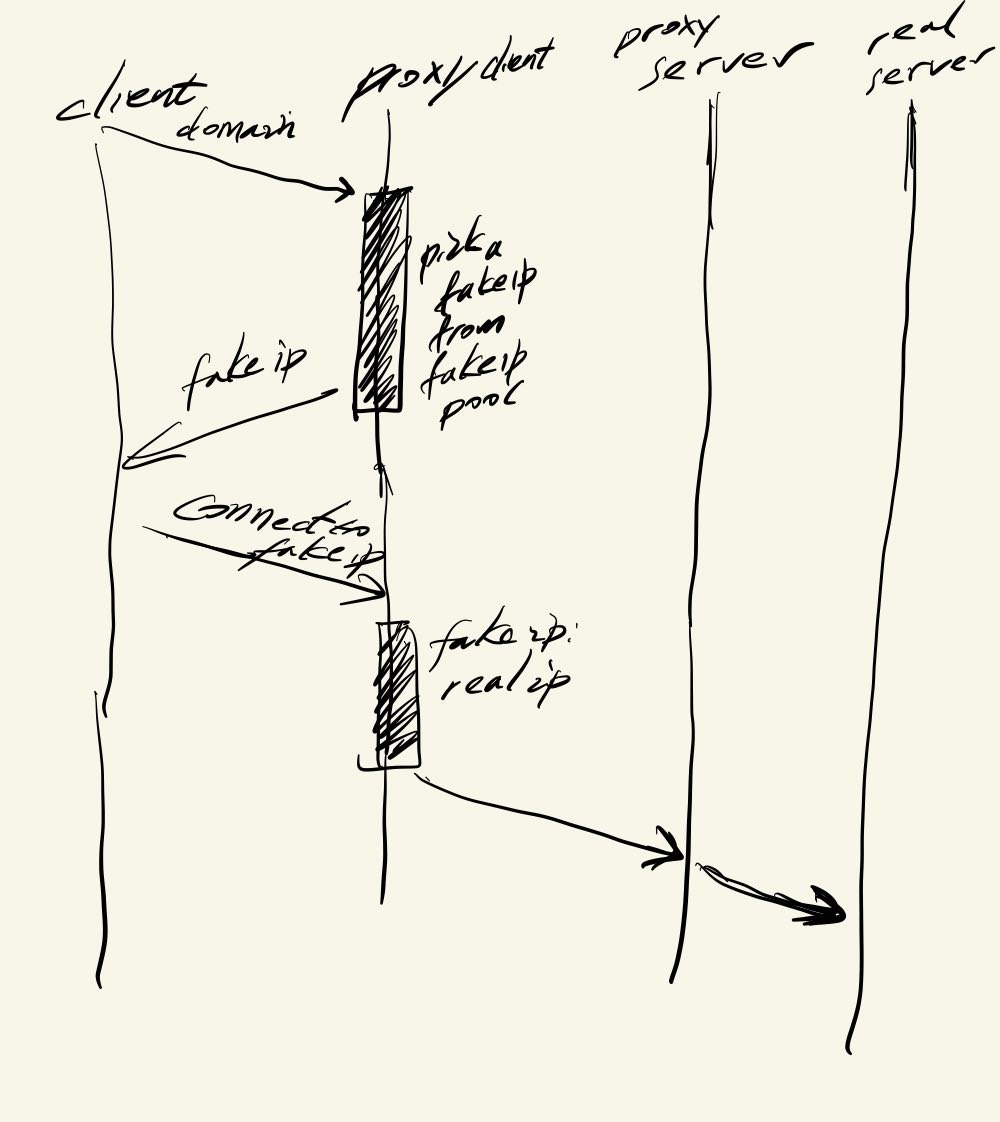 client
proxy client
proxy
server
real
server
domain
pick a
fakeip
from
fakeip
pool
fake ip
Connect to
fake ip
fake ip:
real ip